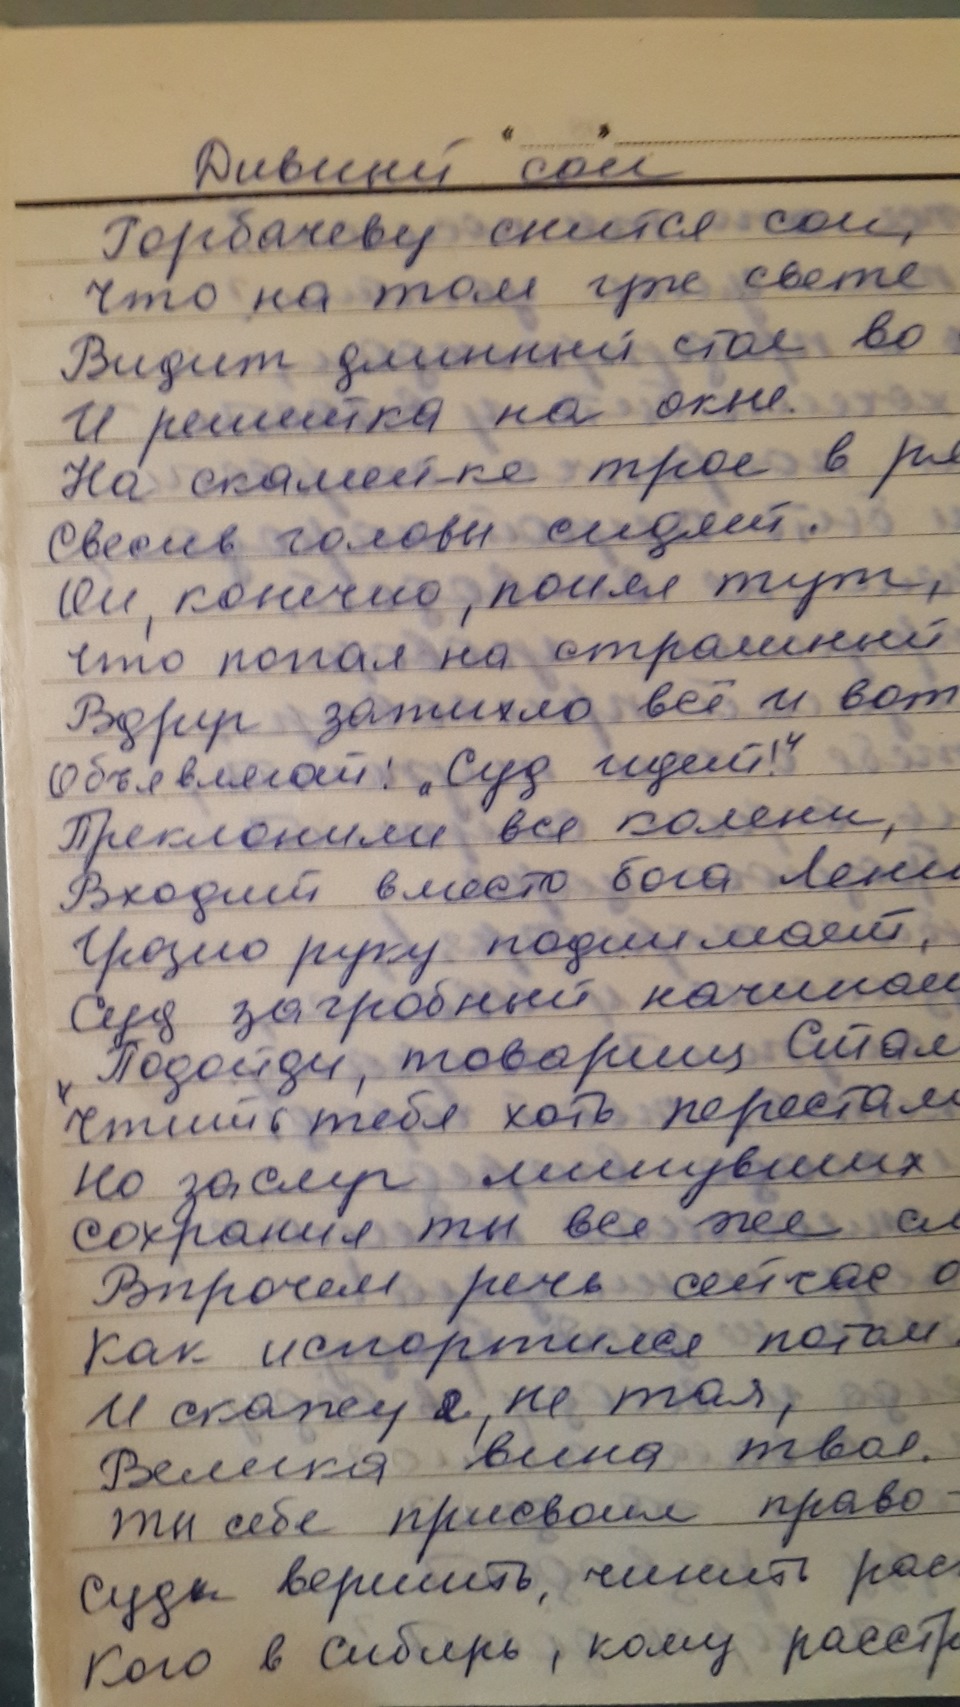 " "
Дивный сон
Горбачеву снится сон,
Что на том уже свете
Видит длинный стол во
И решетка на окне.
На скамейке трое в ря
Свесив головы сидят.
Он, конечно, понял тут,
Что попал на страшный
Вдруг затихло всё и вот
Объявляют: „Суд идет!“
Преклонили все колени,
Входит вместо бога Лени
Грозно руку поднимает,
Суд загробный начинае
„Подойди, товарищ Стал
Чтить тебя хоть перестал
Но заслуг минувших
Сохранил ты все же сл
Впрочем речь сейчас о
Как испортился потом.
И скажу я, не тая,
Велика вина твоя.
Ты себе присвоил право -
Суды вершить, чинить рас
Кого в Сибирь, кому расстр